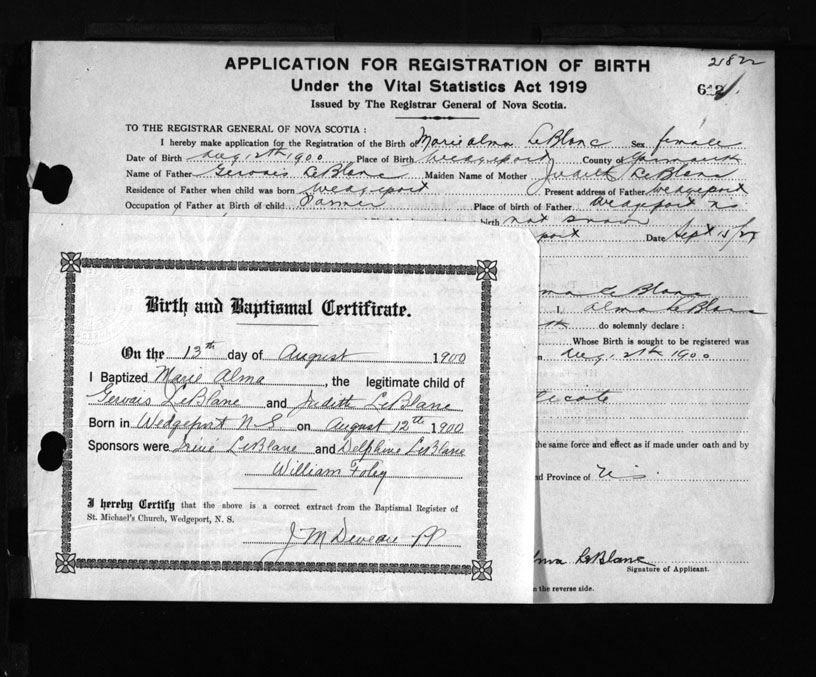 APPLICATION FOR REGISTRATION OF BIRTH
2182
Under the Vital Statistics Act 1919
Issued by The Registrar General of Nova Scotia.
TO THE REGISTRAR GENERAL OF NOVA SCOTIA:
I hereby make application for the Registration of the Birth of Marie Alma LeBlanc Sex female
Date of Birth Aug 12th 1900 Place of Birth Wedgeport County of Yarmouth
Name of Father Gervais LeBlanc Maiden Name of Mother Judith LeBlanc
Residence of Father when child was born Wedgeport Present address of Father Wedgeport
Occupation of Father at Birth of child Farmer Place of birth of Father Wedgeport NS
birth not
port Date Sept 15/
ma LeBlanc
I, Alma LeBlanc
th do solemnly declare:
Whose Birth is sought to be registered was
n Aug 12th 1900
ficate
the same force and effect as if made under oath and by
d Province of N.S.
lma LeBlanc
Signature of Applicant.
n the reverse side.
Birth and Baptismal Certificate.
On the 13th day of August 1900
I Baptized Marie Alma, the legitimate child of
Gervais LeBlanc and Judith LeBlanc
Born in Wedgeport N.S. on August 12th 1900
Sponsors were LeBlanc and Delphine LeBlanc
William Foley
I hereby Certify that the above is a correct extract from the Baptismal Register of
St. Michael's Church, Wedgeport, N. S.
J M